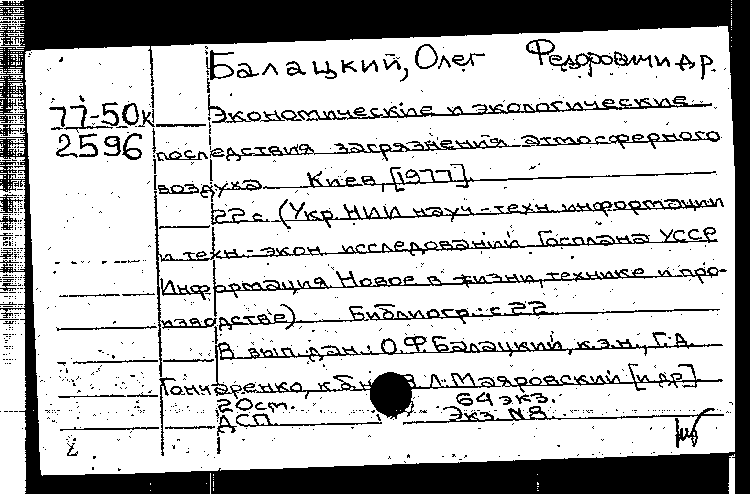 Балацкий, Олег Федорович и др.
77-50к Экономические и экологические
2596 последствия загрязнения атмосферного
воздуха. Киев, [1977].
22 с. (Укр. НИИ науч.-техн. информации
и техн.-экон. исследований Госплана УССР
Информация Новое в жизни, технике и про-
изводстве) Библиогр.: с. 22
В вып. дан.: О.Ф. Балацкий, к.э.н., Г.Д.
Гончаренко, к.б.н. В Л. Маяровский [и др]
20 cm. 64 экз.
ДСП. Экз N8